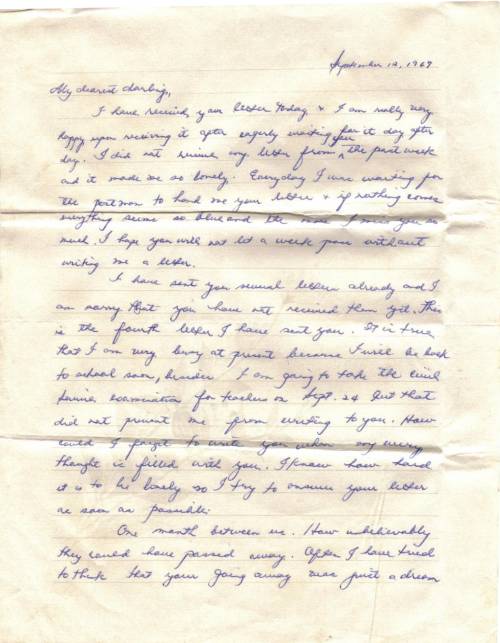 September 12, 1969
My dearest darling,
I have received your letter today & I am really very
happy upon receiving it after eagerly waiting for it day after
day. I did not receive any letter from you the past week
and it made me so lonely. Everyday I was waiting for
the postman to hand me your letter & if nothing comes
everything seems so blue and the more I miss you so
much. I hope you will not let a week pass without
writing me a letter.
I have sent you several letters already and I
am sorry that you have not received them yet. This
is the fourth letter I have sent you. It is true
that I am very busy at present because I will be back
to school soon, besides I am going to take the civil
service examination for teachers on Sept. 24 but that
did not prevent me from writing to you. How
could I forget to write you when my every
thought is filled with you. I know how hard
it is to be lonely so I try to answer your letter
as soon as possible.
One month between us. How unbelievably
they could have passed away. Often I have tried
to think that your going away was just a dream